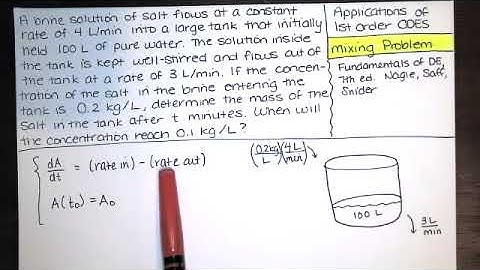 A brine solution of salt flows at a constant
rate of 4 L/min into a large tank that initially
held 100 L of pure water. The solution inside
the tank is kept well-stirred and flows out of
the tank at a rate of 3 L/min. If the concen-
tration of the salt in the brine entering the
tank is 0.2 kg/L, determine the mass of the
salt in the tank after t minutes. When will
the concentration reach 0.1 kg/L?
Applications of
1st order ODES
mixing Problem
Fundamentals of DE,
7th ed. Nagle, Saff,
Snider
dA/dt = (rate in) - (rate out)
A(t₀) = A₀
(0.2kg/L)(4L/min)
100 L
3L/min